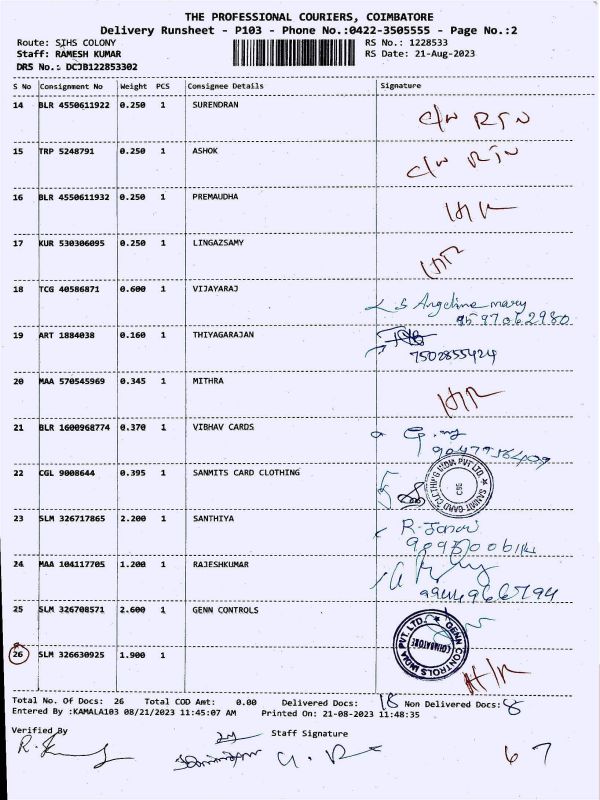 THE PROFESSIONAL COURIERS, COIMBATORE
Delivery Runsheet - P103 - Phone No.:0422-3505555 - Page No.:2
Route: SIHS COLONY RS No.: 1228533
Staff: RAMESH KUMAR RS Date: 21-Aug-2023
DRS No.: DCJB122853302
S No Consignment No Weight PCS Consignee Details Signature
14 BLR 4550611922 0.250 1 SURENDRAN C/W RTN
15 TRP 5248791 0.250 1 ASHOK C/W RTN
16 BLR 4550611932 0.250 1 PREMAUDHA H/R
17 KUR 530306095 0.250 1 LINGAZSAMY H/R
18 TCG 40586871 0.600 1 VIJAYARAJ S Angeline mary
9597062980
19 ART 1884038 0.160 1 THIYAGARAJAN
7502855424
20 MAA 570545969 0.345 1 MITHRA H/R
21 BLR 1600968774 0.370 1 VIBHAV CARDS
22 CGL 9008644 0.395 1 SANMITS CARD CLOTHING
SANMIT CARD CLOTHING INDIA PVT LTD
23 SLM 326717865 2.200 1 SANTHIYA
24 MAA 104117705 1.200 1 RAJESHKUMAR
9944966794
25 SLM 326708571 2.600 1 GENN CONTROLS
GENN CONTROLS INDIA PVT. LTD. COIMBATORE
26 SLM 326630925 1.900 1 H/R
Total No. Of Docs: 26 Total COD Amt: 0.00 Delivered Docs: 18 Non Delivered Docs: 8
Entered By :KAMALA103 08/21/2023 11:45:07 AM Printed On: 21-08-2023 11:48:35
Verified By Staff Signature
67